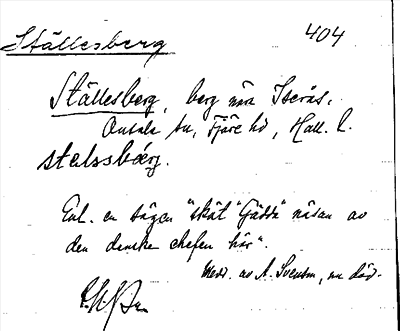 404
Ställesberg
Ställesberg, berg nära Iserås,
Onsala sn, Fjäre hd, Hall. l.
stalssbærg.
Enl. en sägen "sköt "Gädda" näsan av
den danske chefen här".
Medd. av A. Svenson, nu död.